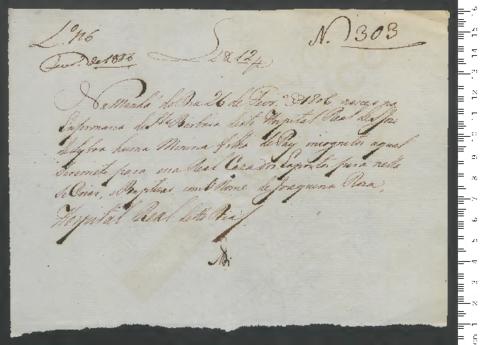 L.º nº 6
Fevr.º de 1816
L 8 12/4
N. 303
Na Manhã do Dia 26 de Fevr.º de 1816 nasceo na
Enfermaria de S.ta Barbara deste Hospital Real de S. Jose
de Lisboa huma Menina filha de Pay incognito a qual
remeto para essa Real Caza dos Expostos para nella
se Criar, e Baptizar com o Nome de Joaquina Roza.
Hospital Real